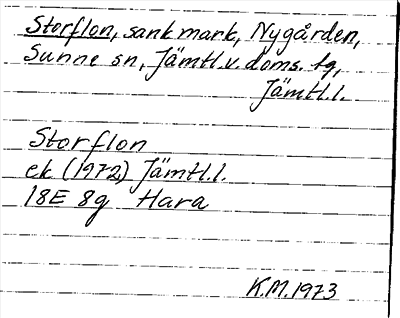 Storflon, sank mark, Nygården,
Sunne sn, Jämtl.v.doms. tg,
Jämtl.l.
Storflon
ek (1972) Jämtl.l.
18E 8g Hara
K.M.1973